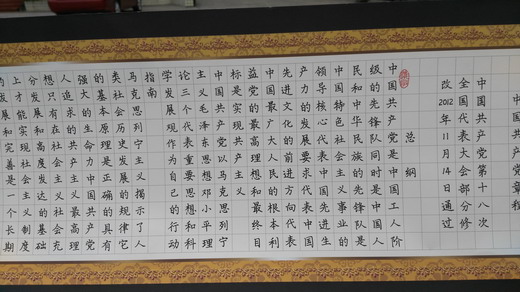 中国共产党章程
中国共产党第十八次
全国代表大会部分修
改2012年11月14日通过
总纲
中国共产党是中国工人阶
级的先锋队同时是中国人
民和中华民族的先锋队是
中国特色社会主义事业的
领导核心代表中国先进生
产力的发展要求代表中国
先进文化的前进方向代表
中国最广大人民的根本利
益党的最高理想和最终目
标是实现共产主义
中国共产党以马克思列宁
主义毛泽东思想邓小平理
论三个代表重要思想和科
学发展观作为自己的行动
指南
马克思列宁主义揭示了人
类社会历史发展的规律它
的基本原理是正确的具有
强大的生命力中国共产党
人追求的共产主义最高理
想只有在社会主义社会充
分发展和高度发达的基础
上才能实现社会主义制度
的发展和完善是一个长期